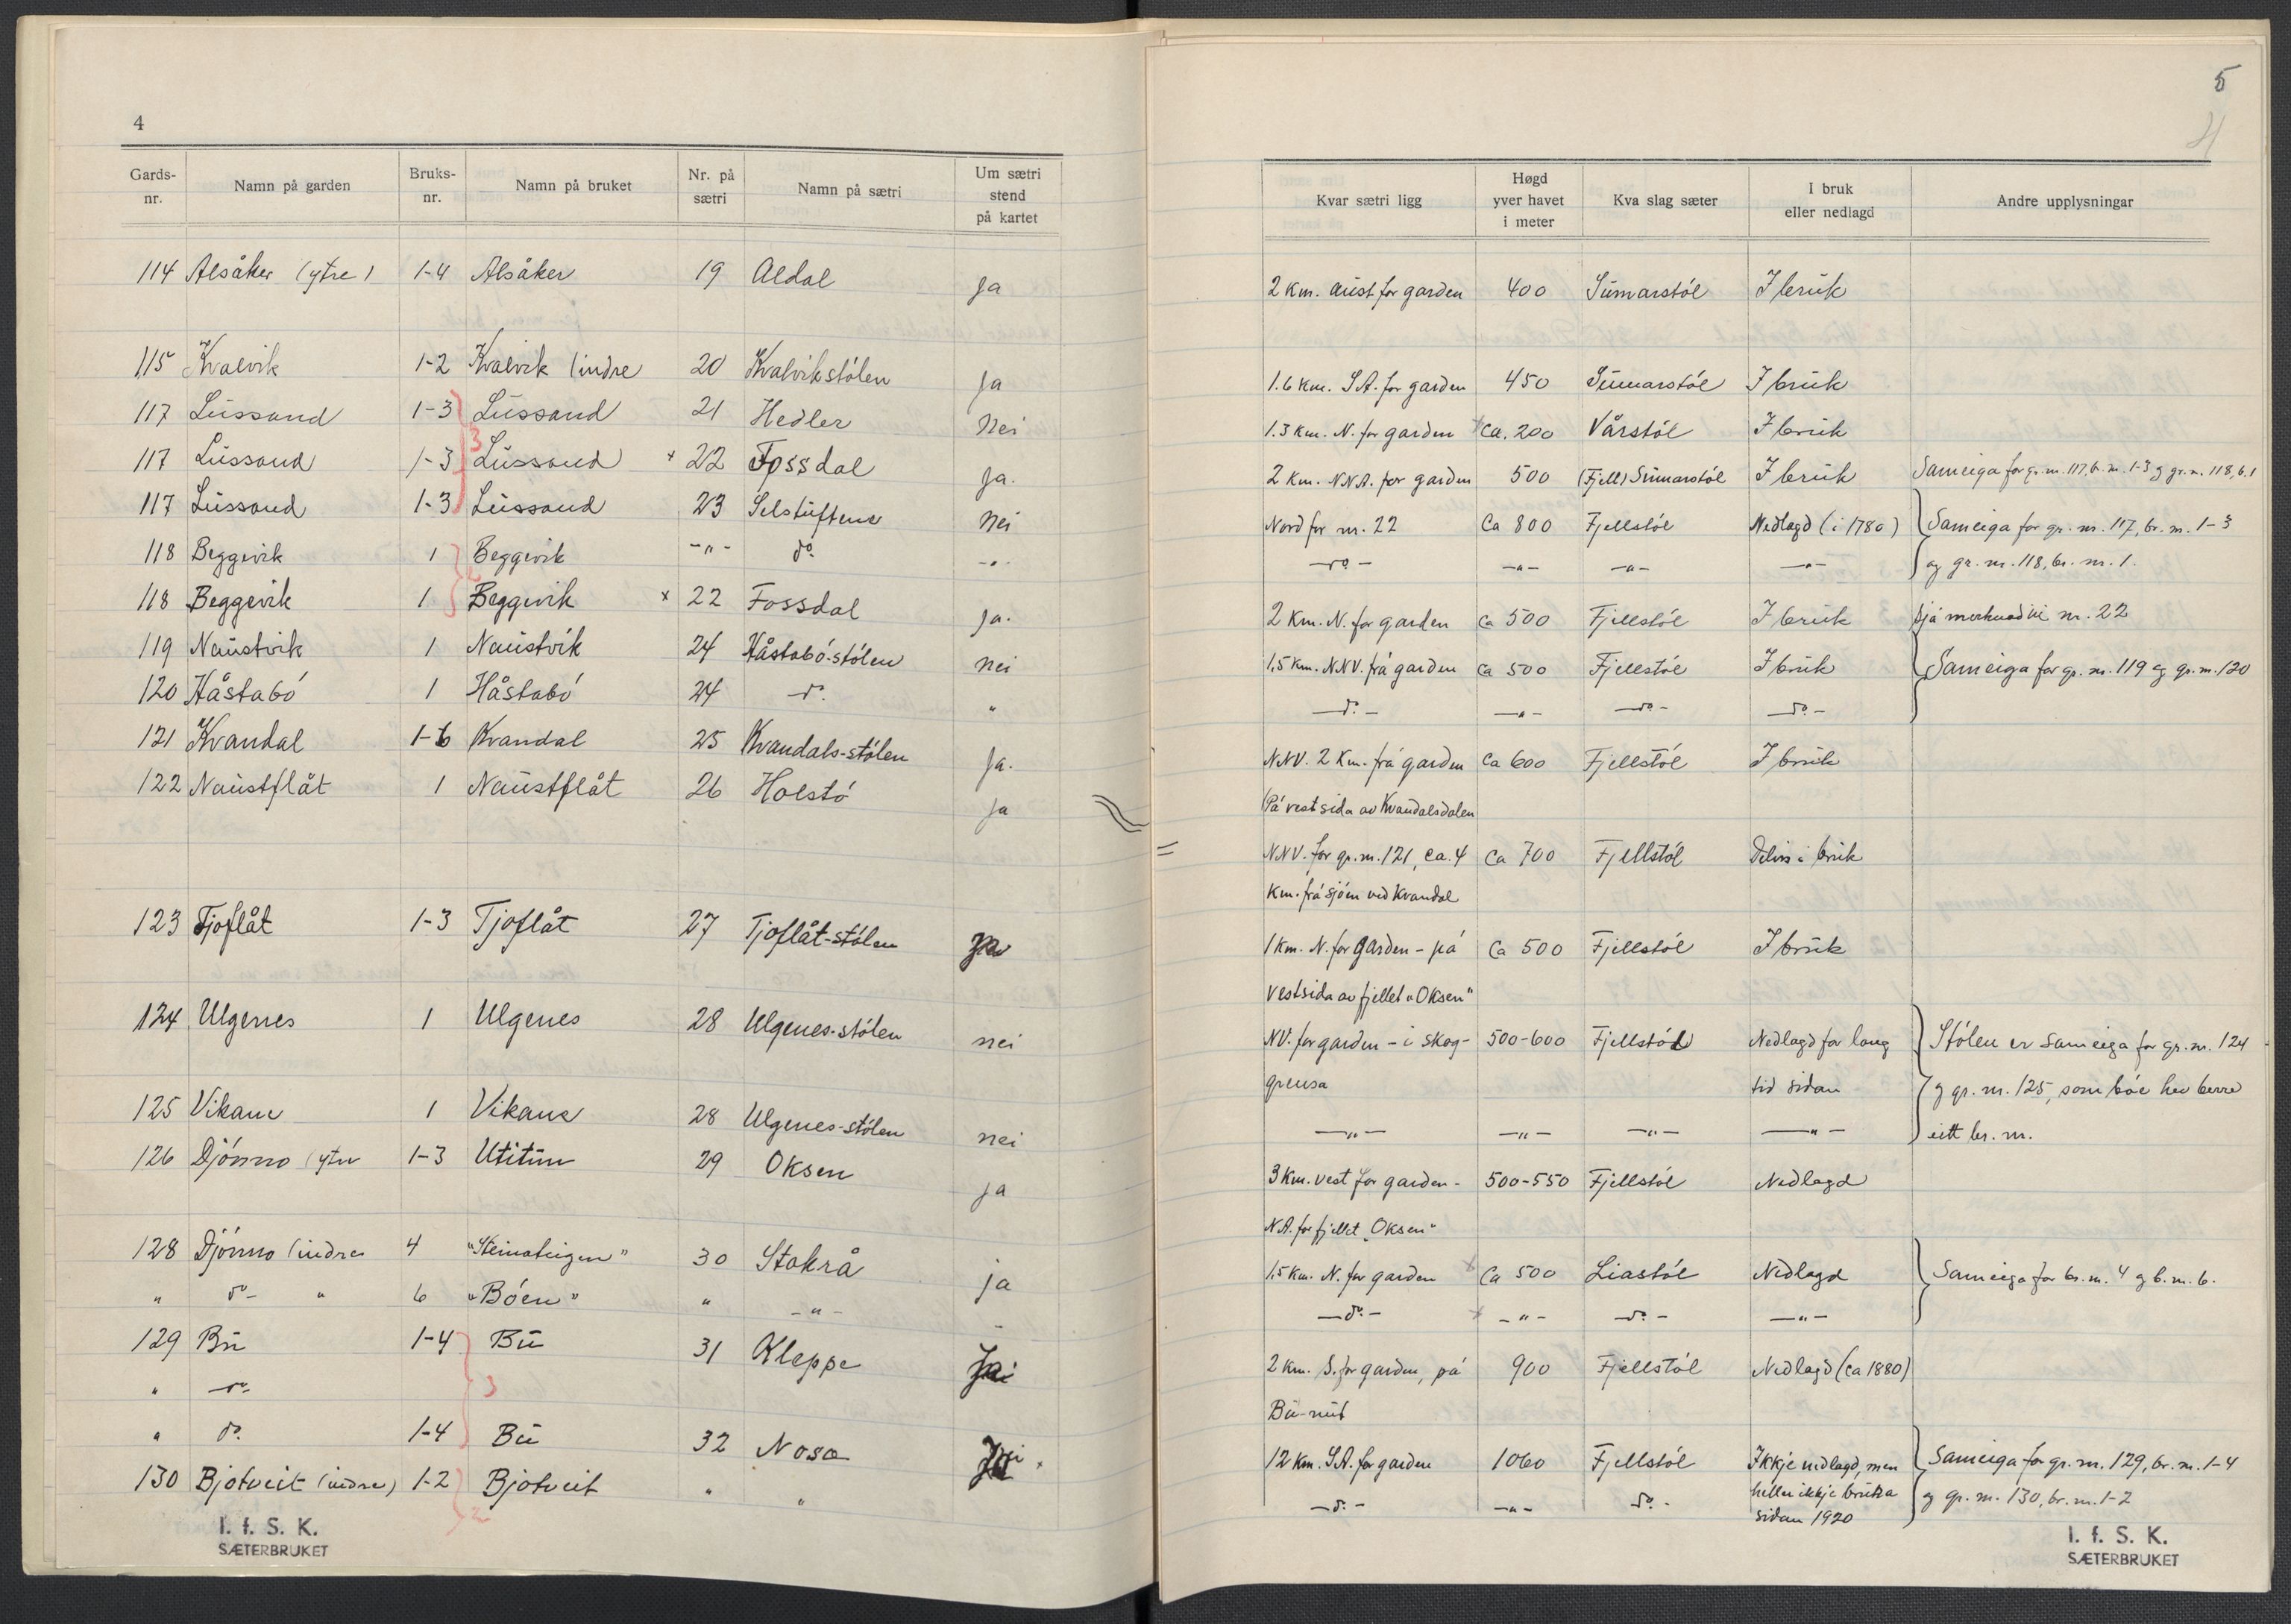 4
Gards-nr. Namn på garden Bruks-nr. Namn på bruket Nr. på sætri Namn på sætri Um sætri stend på kartet
114 Alsåker (ytre) 1-4 Alsåker 19 Aldal Ja
115 Kvalvik 1-2 Kvalvik (indre 20 Kvalvikstólen Ja
117 Lussand 1-3 Lussand 21 Hedler Nei
3
117 Lussand 1-3 Lussand × 22 Fossdal Ja.
117 Lussand 1-3 Lussand 23 Selstuftene Nei
118 Beggevik 1 Beggevik -"- do. -"-
118 Beggevik 1 Beggevik × 22 Fossdal Ja.
119 Naustvik 1 Naustvik 24 Håstabó-stólen Nei
120 Håstabó 1 Håstabó 24 do. "
121 Kvandal 1-6 Kvandal 25 Kvandals-stólen Ja.
122 Naustflåt 1 Naustflåt 26 Holstó Ja
123 Tjoflåt 1-3 Tjoflåt 27 Tjoflåt-stólen Ja
124 Ulgenes 1 Ulgenes 28 Ulgenes-stólen nei
125 Vikane 1 Vikane 28 Ulgenes-stólen nei
126 Djónno (ytre 1-3 Utitun 29 Oksen ja
128 Djónno (indre 4 "Steinateigen" 30 Stokrå ja
" do- " 6 "Bóen" " -"- -
129 Bu 1-4 Bu 31 Kleppe Ja
" do. 3
" do. 1-4 Bu 32 Nosa Ja.
130 Bjotveit (indre) 1-2 Bjotveit " "
2
I. f. S. K.
SÆTERBRUKET
5
4
Kvar sætri ligg Høgd yver havet i meter Kva slag sæter I bruk eller nedlagd Andre upplysningar
2 km. aust for garden 400 Sumarstól I bruk
1.6 km. S.A. for garden 450 Sumarstól I bruk
1.3 km. N. for garden ca. 200 Vårstól I bruk
2 km. N.N.A. for garden 500 (Fjell) Sumarstól I bruk Sameiga for gr. nr. 117, br. nr. 1-3 og gr. n. 118, b. 1
Nord for nr. 22 Ca 800 Fjellstól Nedlagd (i 1780) Sameiga for gr. nr. 117, br. nr. 1-3
-do.- -"- -"- -"- og gr. nr. 118, br. nr. 1.
2 km. N. for garden ca 500 Fjellstól I bruk Sjå merknad til nr. 22
1.5 km. NNV. frå garden ca 500 Fjellstól I bruk Sameiga for gr. nr. 119 og gr. nr. 120
-do.- -"- -do.- -do.-
NNV. 2 km. frå garden Ca 600 Fjellstól I bruk
På vestsida av Kvandalsdalen
NNV. for gr. nr. 121, ca. 4 Ca 700 Fjellstól Delvis i bruk
km. frå sjóen ved Kvandal
1 km. N. for garden - på Ca 500 Fjellstól I bruk
vestsida av fjellet "Oksen"
NV. for garden - i skog- 500-600 Fjellstól Nedlagd for lang Stólen er sameiga for gr. nr. 124
grensa tid sidan og gr. nr. 125, som bóe hev berre
-"- -"- -"- -"- eitt br. nr.
3 km. vest for garden - 500-550 Fjellstól Nedlagd
N.A. for fjellet "Oksen"
1,5 km. N. for garden Ca 500 Liastól Nedlagd Sameiga for br. nr. 4 og b. nr. 6.
-do.- -"- -do.- -"-
2 km. S. for garden, på 900 Fjellstól Nedlagd (ca 1880)
Bu-nut
12 km. S.A. for garden 1060 Fjellstól Ikkje nedlagd, men Sameiga for gr. nr. 129, br. nr. 1-4
-do.- -"- do.- heller ikkje brukt sidan 1920 og gr. nr. 130, br. nr. 1-2
I. f. S. K.
SÆTERBRUKET